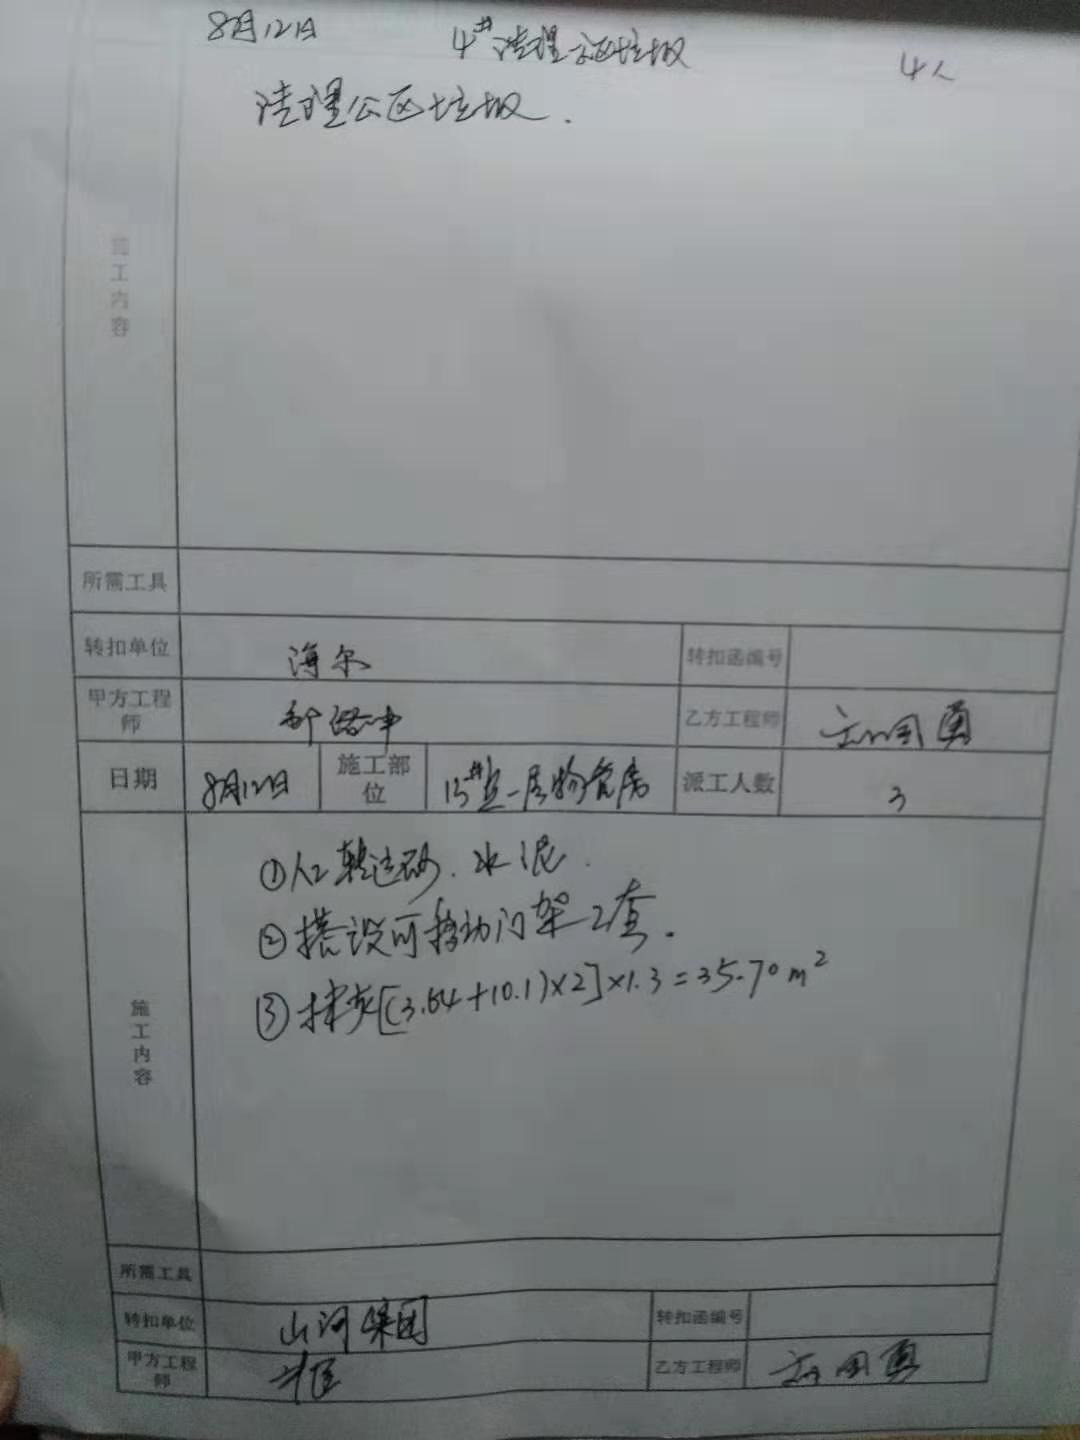 8月12日 4#清理公区垃圾 4人
清理公区垃圾.
施工内容
所需工具
转扣单位 海尔 转扣函编号
甲方工程师 乙方工程师
日期 8月12日 施工部位 13# 一层物管房 派工人数 3
施工内容
①人工转运砂.水泥.
②搭设可移动门架2套.
③抹灰[(3.64+10.1)×2]×1.3=35.70m²
所需工具
转扣单位 山河集团 转扣函编号
甲方工程师 乙方工程师